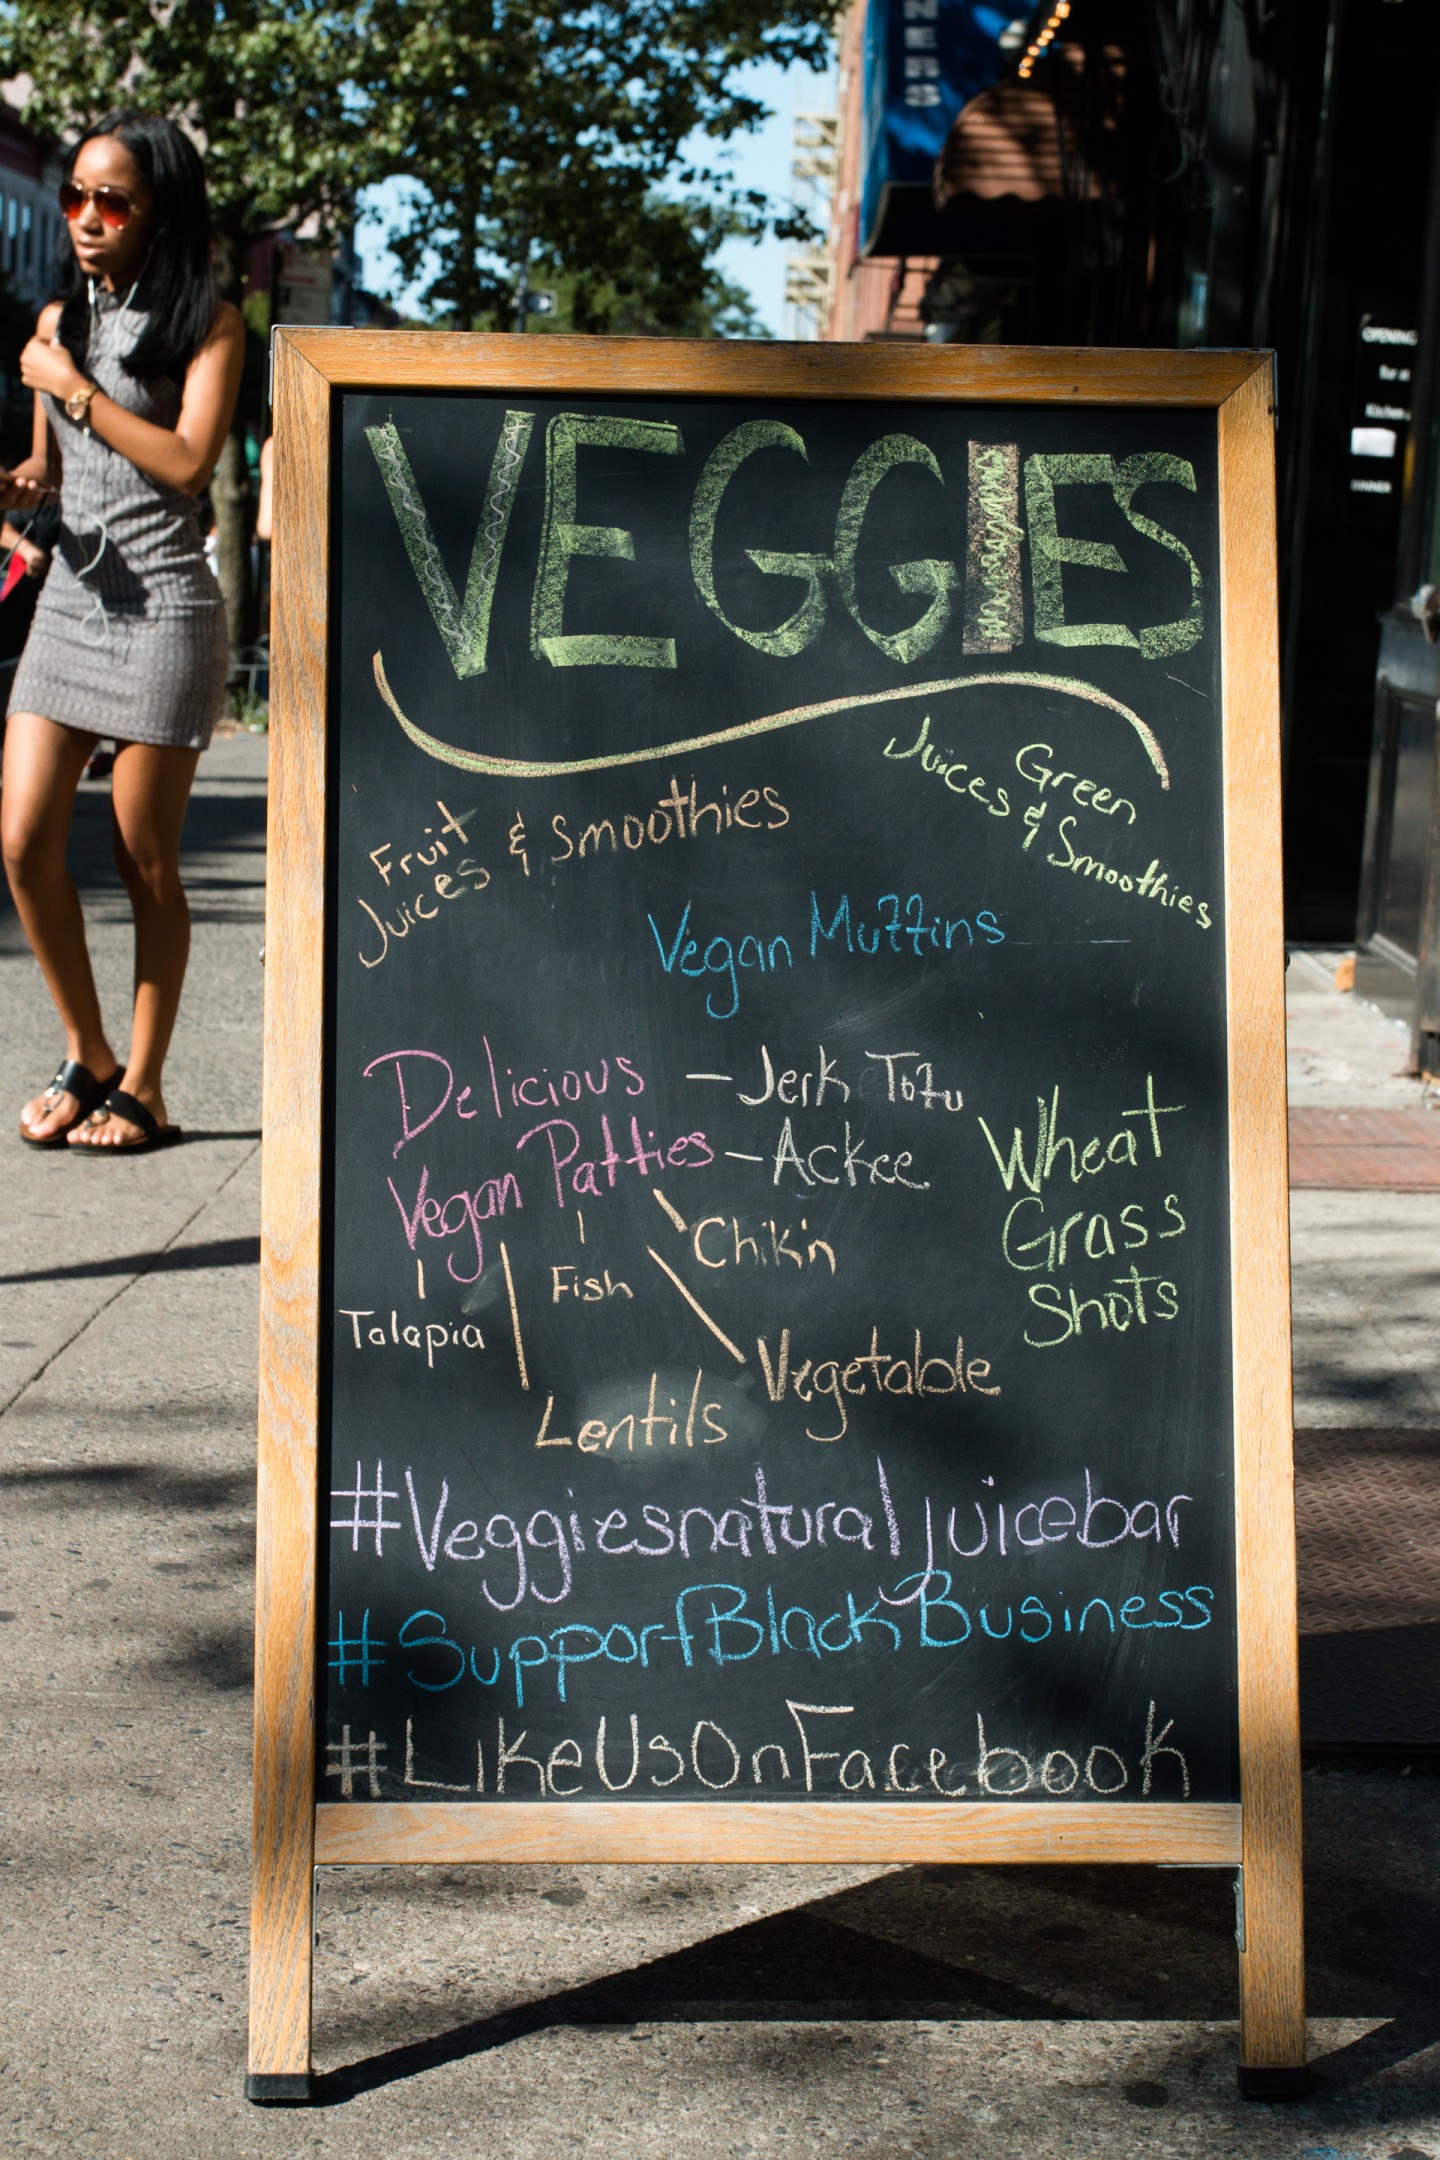 NERS
OPENING
DINNER
VEGGIES
Fruit
Juices & Smoothies
Green
Juices & Smoothies
Vegan Muffins
Delicious
Vegan Patties
- Jerk Tofu
- Ackee
Chik'n
Fish
Talapia
Vegetable
Lentils
Wheat
Grass
Shots
#Veggiesnaturaljuicebar
#SupportBlackBusiness
#LikeUsOnFacebook